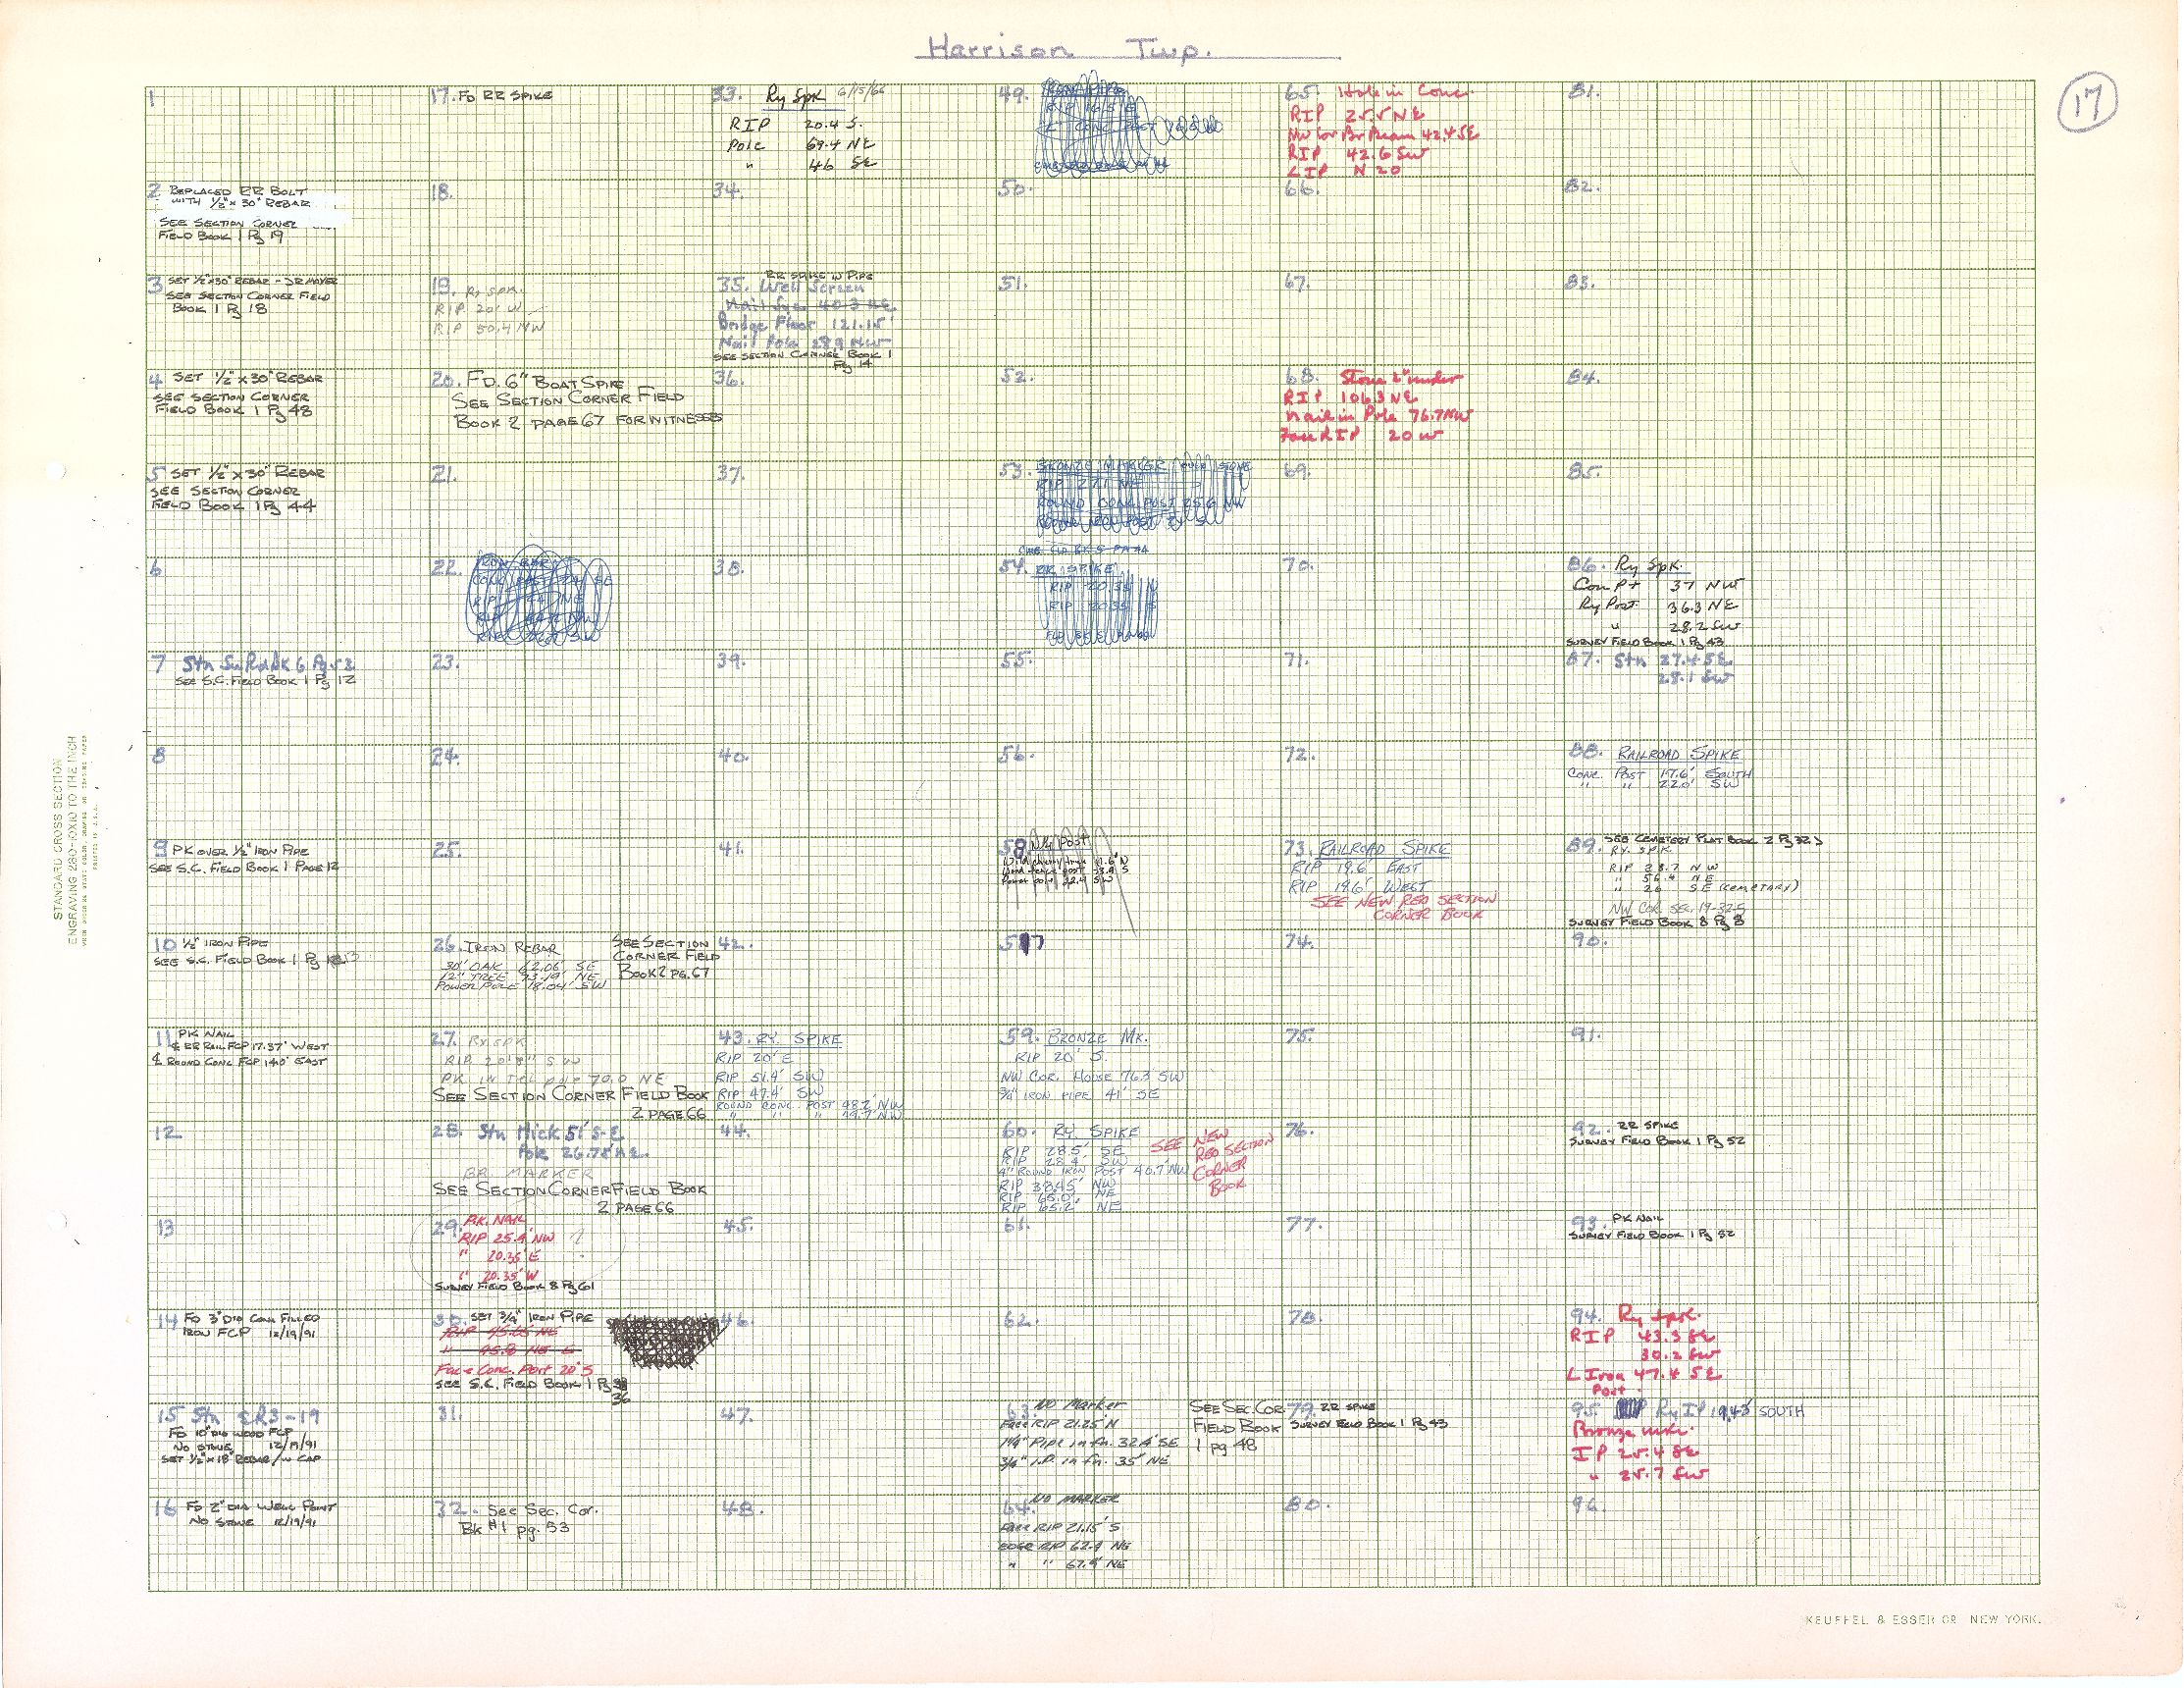 Harrison Twp.
17
1
2 REPLACED RR BOLT
WITH 1/2" x 30" REBAR
SEE SECTION CORNER
FIELD BOOK 1 Pg 19
3 SET 1/2"x30" REBAR - JR MOYER
SEE SECTION CORNER FIELD
BOOK 1 Pg 18
4 SET 1/2" x 30" REBAR
SEE SECTION CORNER
FIELD BOOK 1 Pg 48
5 SET 1/2" x 30" REBAR
SEE SECTION CORNER
FIELD BOOK 1 Pg 44
6
7 Stn Su Rd Bk 6 Pg 52
SEE S.C. FIELD BOOK 1 Pg 12
8
9 PK OVER 1/2" IRON PIPE
SEE S.C. FIELD BOOK 1 PAGE 12
10 1/2" IRON PIPE
SEE S.C. FIELD BOOK 1 Pg 13
11 PK NAIL
℄ RR RAIL FCP 17.37' WEST
℄ ROUND CONC FCP 14.0' EAST
12
13
14 FD 3" DIA CONC FILLED
IRON FCP 12/19/91
15 Stn SR3-19
FD 10" DIA WOOD FCP
NO STONE 12/19/91
SET 1/2" x 18" REBAR/W CAP
16 FD 2" DIA WELL POINT
NO STONE 12/19/91
17. FD RR SPIKE
18.
19. Ry SPK.
RIP 20' W
RIP 50.4 NW
20. FD. 6" BOAT SPIKE
SEE SECTION CORNER FIELD
BOOK 2 PAGE 67 FOR WITNESSES
21.
22. IRON BAR
CONC POST 24 SE
23.
24.
25.
26. IRON REBAR
30" OAK 62.06' SE
12" TREE 73.19' NE
POWER POLE 18.04' SW
SEE SECTION
CORNER FIELD
BOOK 2 PG. 67
27. RY SPK
RIP 20'8" SW
PK in Tel pole 70.0 NE
SEE SECTION CORNER FIELD BOOK
2 PAGE 66
28. Stn Hick 51' S-E
Pole 26.75 N.E.
BR. MARKER
SEE SECTION CORNER FIELD BOOK
2 PAGE 66
29. P.K. NAIL
RIP 25.4 NW ?
" 20.35' E
" 20.35' W
SURVEY FIELD BOOK 8 Pg 61
30. SET 3/4" IRON PIPE
RIP 45.65 NE
" 45.8 NE
Face Conc. Port 20' S
SEE S.C. FIELD BOOK 1 Pg
36
31.
32. See Sec. Cor.
Bk #1 pg. 53
33. Ry Spk 6/15/66
RIP 20.4 S.
Pole 69.4 NE
" 46 SE
34.
RR SPIKE IN PIPE
35. Well Screen
Nail Syc 40.3 NE
Bridge Floor 121.15'
Nail Pole 28.9 NW
SEE SECTION CORNER BOOK 1
Pg 14
36.
37.
38.
39.
40.
41.
42.
43. RY. SPIKE
RIP 20' E
RIP 51.4' SW
RIP 47.4' SW
ROUND CONC. POST 48.2' NW
" " " 49.7' NW
44.
45.
46.
47.
48.
49.
RIP 16.5 E
50.
51.
52.
53. BRONZE MARKER OVER STONE
RIP 27.1 NE
ROUND CONC. POST 25.6 NW
CMB FLD BK 5 PA 44
54. RR SPIKE
RIP 20.35 N
RIP 20.35 S
55.
56.
58 N/4 Post
Wild cherry tree 11.6' N
Wood fence post 33.9 S
Power pole 22.4 SW
57
59. BRONZE MK.
RIP 20' S.
NW COR. HOUSE 76.3 SW
3/4" IRON PIPE 41' SE
60. RY. SPIKE
RIP 28.5' SE
RIP 28.4' SW
4" ROUND IRON POST 40.7' NW
RIP 38.45' NW
RIP 65.0' NE
RIP 65.2' NE
SEE NEW
RED SECTION
CORNER
BOOK
61.
62.
63. NO Marker
Face RIP 21.25' N
1 1/4" Pipe in fn. 32.4' SE
3/4" I.P. in fn. 35' NE
SEE SEC. COR
FIELD BOOK
1 pg 48
64. NO MARKER
Face RIP 21.15' S
EDGE RIP 62.9 NE
" " 67.9' NE
65. Hole in Conc.
RIP 25.5 NE
NW Cor Br Beam 42.4 SE
RIP 42.6 SW
LIP N 20
66.
67.
68. Stone 2" under
RIP 106.3 NE
Nail in Pole 76.7 NW
Face RIP 20 W
69.
70.
71.
72.
73. RAILROAD SPIKE
RIP 19.6' EAST
RIP 19.6' WEST
SEE NEW RED SECTION
CORNER BOOK
74.
75.
76.
77.
78.
79. RR SPIKE
SURVEY FIELD BOOK 1 Pg 43
80.
81.
82.
83.
84.
85.
86. Ry Spk.
Con Pt 37 NW
Ry Post 36.3 NE
" 28.2 SW
SURVEY FIELD BOOK 1 Pg 43
87. Stn 27.4 SE
28.1 SW
88. RAILROAD SPIKE
CONC. POST 17.6' SOUTH
" " 22.0' SW
89. SEE CEMETERY PLAT BOOK 2 Pg 32
RY. SPK
RIP 28.7 NW
" 56.4 NE
" 26 SE (CEMETARY)
NW COR. SEC. 19-32-5
SURVEY FIELD BOOK 8 Pg 8
90.
91.
92. RR SPIKE
SURVEY FIELD BOOK 1 Pg 52
93. PK NAIL
SURVEY FIELD BOOK 1 Pg 52
94. Ry spk.
RIP 43.3 SE
30.2 SW
L Iron 47.4 SE
Post.
95. Ry IP 19.43' SOUTH
Bronze mkr.
IP 25.4 SE
" 25.7 SW
96.
STANDARD CROSS SECTION
ENGRAVING 280-10X10 TO THE INCH
KEUFFEL & ESSER CO. NEW YORK.